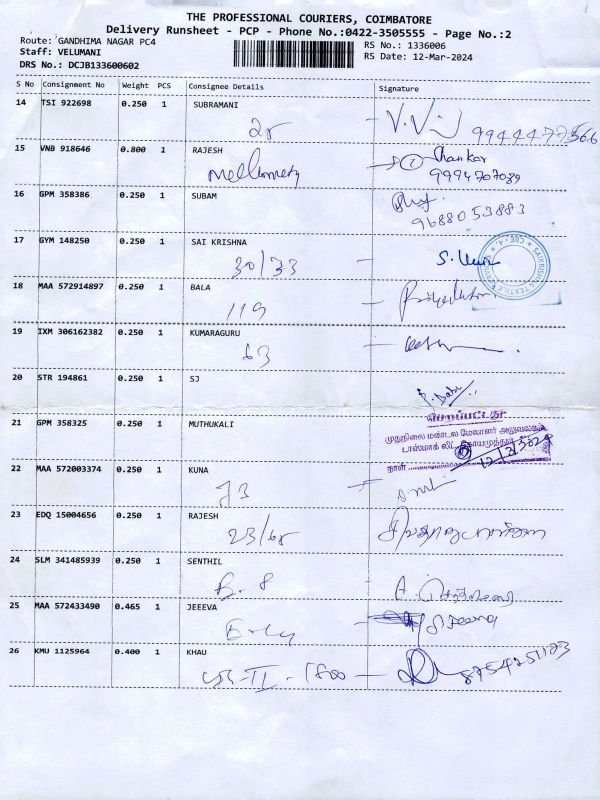 THE PROFESSIONAL COURIERS, COIMBATORE
Delivery Runsheet - PCP - Phone No.:0422-3505555 - Page No.:2
Route: GANDHIMA NAGAR PC4
RS No.: 1336006
Staff: VELUMANI
RS Date: 12-Mar-2024
DRS No.: DCJB133600602
S No Consignment No Weight PCS Consignee Details Signature
14 TSI 922698 0.250 1 SUBRAMANI
9944477566
15 VNB 918646 0.800 1 RAJESH
Shankar
9994707039
16 GPM 358386 0.250 1 SUBAM
9688053883
17 GYM 148250 0.250 1 SAI KRISHNA
30/33
18 MAA 572914897 0.250 1 BALA
119
19 IXM 306162382 0.250 1 KUMARAGURU
63
20 STR 194861 0.250 1 SJ
21 GPM 358325 0.250 1 MUTHUKALI
பெறப்பட்டது
முதுநிலை மண்டல மேலாளர் அலுவலகம்
டாஸ்மாக் லிட்.,
நாள்
12/3/2024
22 MAA 572003374 0.250 1 KUNA
23 EDQ 15004656 0.250 1 RAJESH
23/68
24 SLM 341485939 0.250 1 SENTHIL
B. 8
25 MAA 572433490 0.465 1 JEEEVA
26 KMU 1125964 0.400 1 KHAU
8754251123